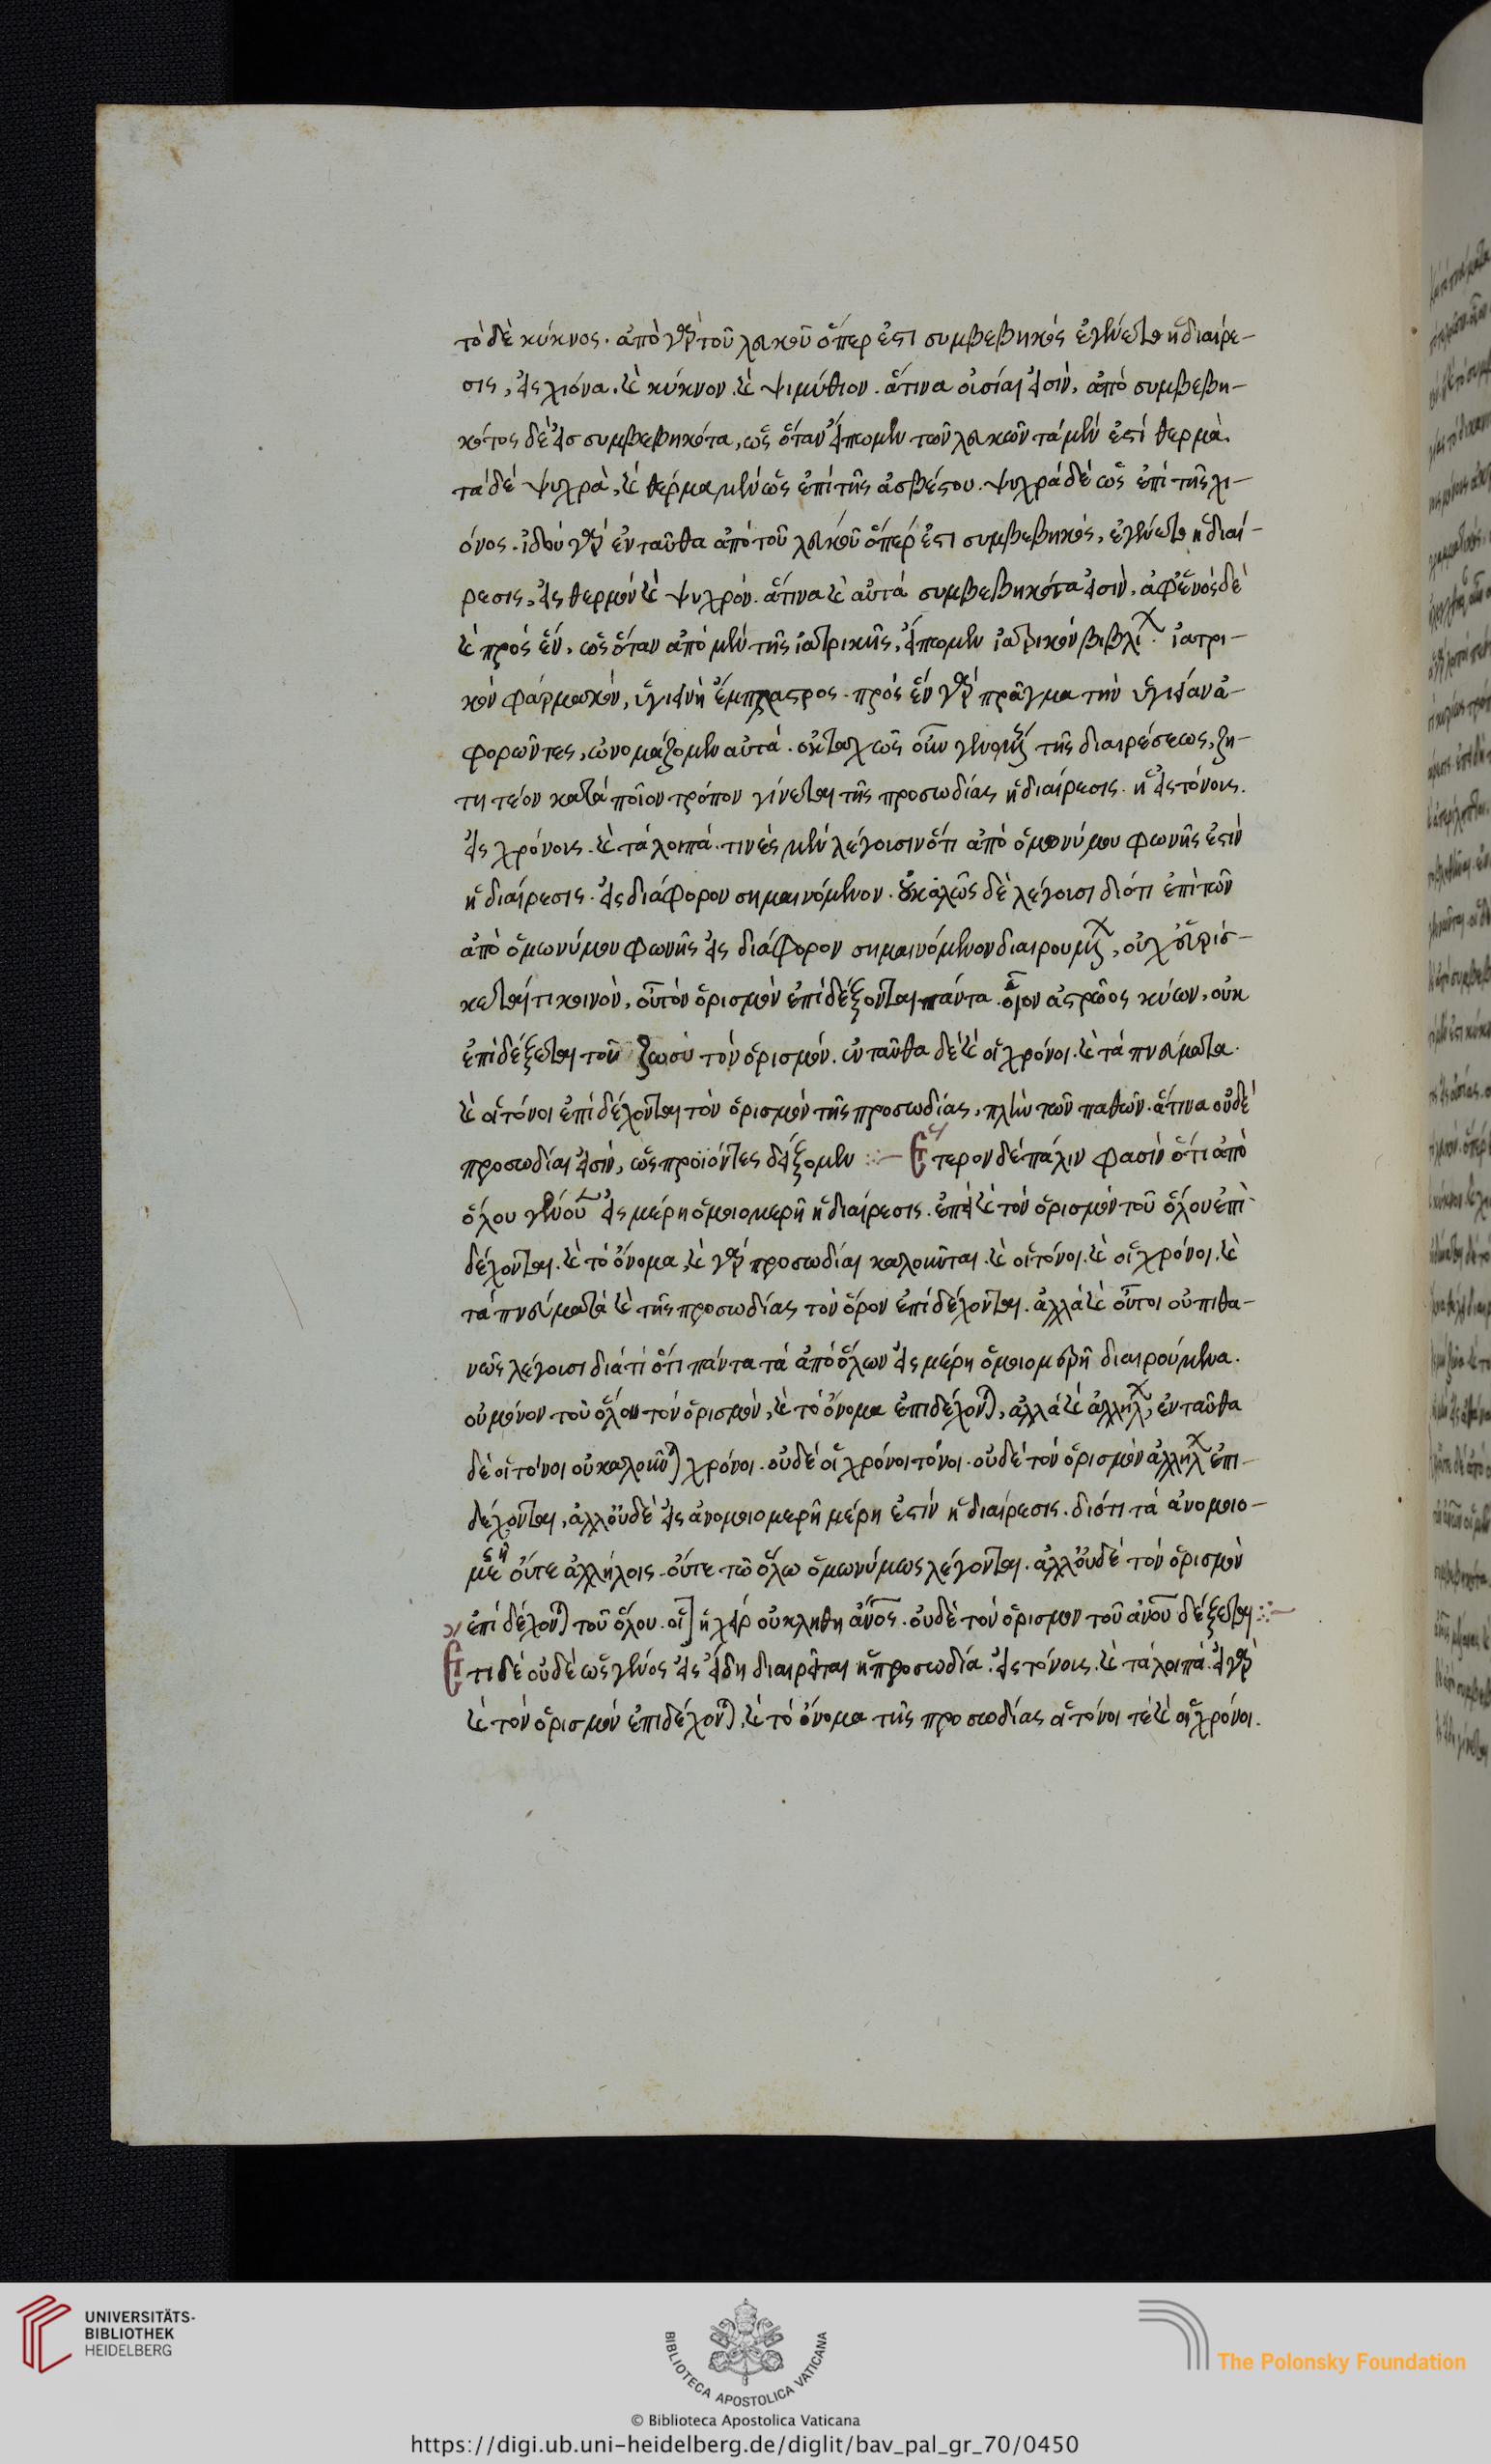 τὸ δὲ κύκνος. ἀπὸ γὰρ τοῦ λευκοῦ ὅπερ ἐστι συμβεβηκὸς ἐγένετο ἡ διαίρε-
σις, εἰς χιόνα. καὶ κύκνον. καὶ ψιμύθιον. ἅτινα οὐσίαι εἰσὶν, ἀπὸ συμβεβη-
κότος δὲ εἰς συμβεβηκότα, ὡς ὅταν εἴπωμεν τῶν λευκῶν τὰ μὲν ἐστὶ θερμὰ.
τὰ δὲ ψυχρὰ, καὶ θέρμα μὲν ὡς ἐπὶ τῆς ἀσβέστου. ψυχρὰ δὲ ὡς ἐπὶ τῆς χι-
όνος. ἰδοὺ γὰρ ἐνταῦθα ἀπὸ τοῦ λευκοῦ ὅπέρ ἐστι συμβεβηκὸς, ἐγένετο ἡ διαί-
ρεσις, εἰς θερμὸν καὶ ψυχρόν. ἅτινα καὶ αὐτὰ συμβεβηκότα εἰσὶν. ἀφ' ἑνὸς δὲ
καὶ πρὸς ἕν, ὡς ὅταν ἀπὸ μὲν τῆς ἰατρικῆς, εἴπωμεν ἰατρικὸν βιβλίον. ἰατρι-
κὸν φάρμακον, ὑγιεινὴ ἔμπλαστρος. πρὸς ἓν γὰρ πρᾶγμα τὴν ὑγιείαν ἀ-
φορῶντες, ὠνομάζομεν αὐτά. ὀκταχῶς οὖν γενομένης τῆς διαιρέσεως, ζη-
τητέον κατὰ ποῖον τρόπον γίνεται τῆς προσωδίας ἡ διαίρεσις. ἡ εἰς τόνους.
εἰς χρόνους. καὶ τὰ λοιπά. τινὲς μὲν λέγουσιν ὅτι ἀπὸ ὁμονύμου φωνῆς ἐστὶν
ἡ διαίρεσις. εἰς διάφορον σημαινόμενον. οὐ καλῶς δὲ λέγουσι διότι ἐπὶ τῶν
ἀπὸ ὁμωνύμου φωνῆς εἰς διάφορον σημαινόμενον διαιρουμένων, οὐχ εὑρίσ-
κεταί τι κοινὸν, οὗ τὸν ὁρισμὸν ἐπιδέξονται πάντα. οἷον ἀστρῶος κύων, οὐκ
ἐπιδέξεται τοῦ ζώου τὸν ὁρισμόν. ἐνταῦθα δὲ καὶ οἱ χρόνοι. καὶ τὰ πνεύματα.
καὶ οἱ τόνοι ἐπιδέχονται τὸν ὁρισμὸν τῆς προσωδίας, πλὴν τῶν παθῶν. ἅτινα οὐδὲ
προσωδίαι εἰσὶν, ὡς προϊόντες δείξομεν :— Ἕτερον δὲ πάλιν φασὶν ὅτι ἀπὸ
ὅλου γενικοῦ εἰς μέρη ὁμοιομερῆ ἡ διαίρεσις. ἐπεὶ καὶ τὸν ὁρισμὸν τοῦ ὅλου ἐπι
δέχονται. καὶ τὸ ὄνομα, καὶ γὰρ προσωδίαι καλοῦνται. καὶ οἱ τόνοι. καὶ οἱ χρόνοι. καὶ
τὰ πνεύματὰ καὶ τῆς προσωδίας τὸν ὅρον ἐπιδέχονται. ἀλλὰ καὶ οὗτοι οὐ πιθα-
νῶς λέγουσι διὰ τί ὅτι πάντα τὰ ἀπὸ ὅλων εἰς μέρη ὁμοιομερῆ διαιρούμενα.
οὐ μόνον τοῦ ὅλου τὸν ὁρισμὸν, καὶ τὸ ὄνομα ἐπιδέχονται, ἀλλὰ καὶ ἀλλήλων, ἐνταῦθα
δὲ οἱ τόνοι οὐ καλοῦνται χρόνοι. οὐδὲ οἱ χρόνοι τόνοι. οὐδὲ τὸν ὁρισμὸν ἀλλήλων ἐπι-
δέχονται, ἀλλ' οὐδὲ εἰς ἀνομοιομερῆ μέρη ἐστὶν ἡ διαίρεσις. διότι τὰ ἀνομοιο-
μερῆ οὔτε ἀλλήλοις. οὔτε τῶ ὅλω ὁμωνύμως λέγονται. ἀλλ' οὐδὲ τὸν ὁρισμὸν
ἐπιδέχονται τοῦ ὅλου. οἷον ἡ χεὶρ οὐ κληθη ἄνος. οὐδὲ τὸν ὁρισμον τοῦ ἀνου δέξεται :—
Ἔτι δὲ οὐδὲ ὡς γένος εἰς εἴδη διαιρεῖται ἡ προσωδία. εἰς τόνους. καὶ τὰ λοιπά. εἰ γὰρ
καὶ τὸν ὁρισμὸν ἐπιδέχονται, καὶ τὸ ὄνομα τῆς προσωδίας οἱ τόνοι τὲ καὶ οἱ χρόνοι.
UNIVERSITÄTS-
BIBLIOTHEK
HEIDELBERG
BIBLIOTECA APOSTOLICA VATICANA
The Polonsky Foundation
© Biblioteca Apostolica Vaticana
https://digi.ub.uni-heidelberg.de/diglit/bav_pal_gr_70/0450